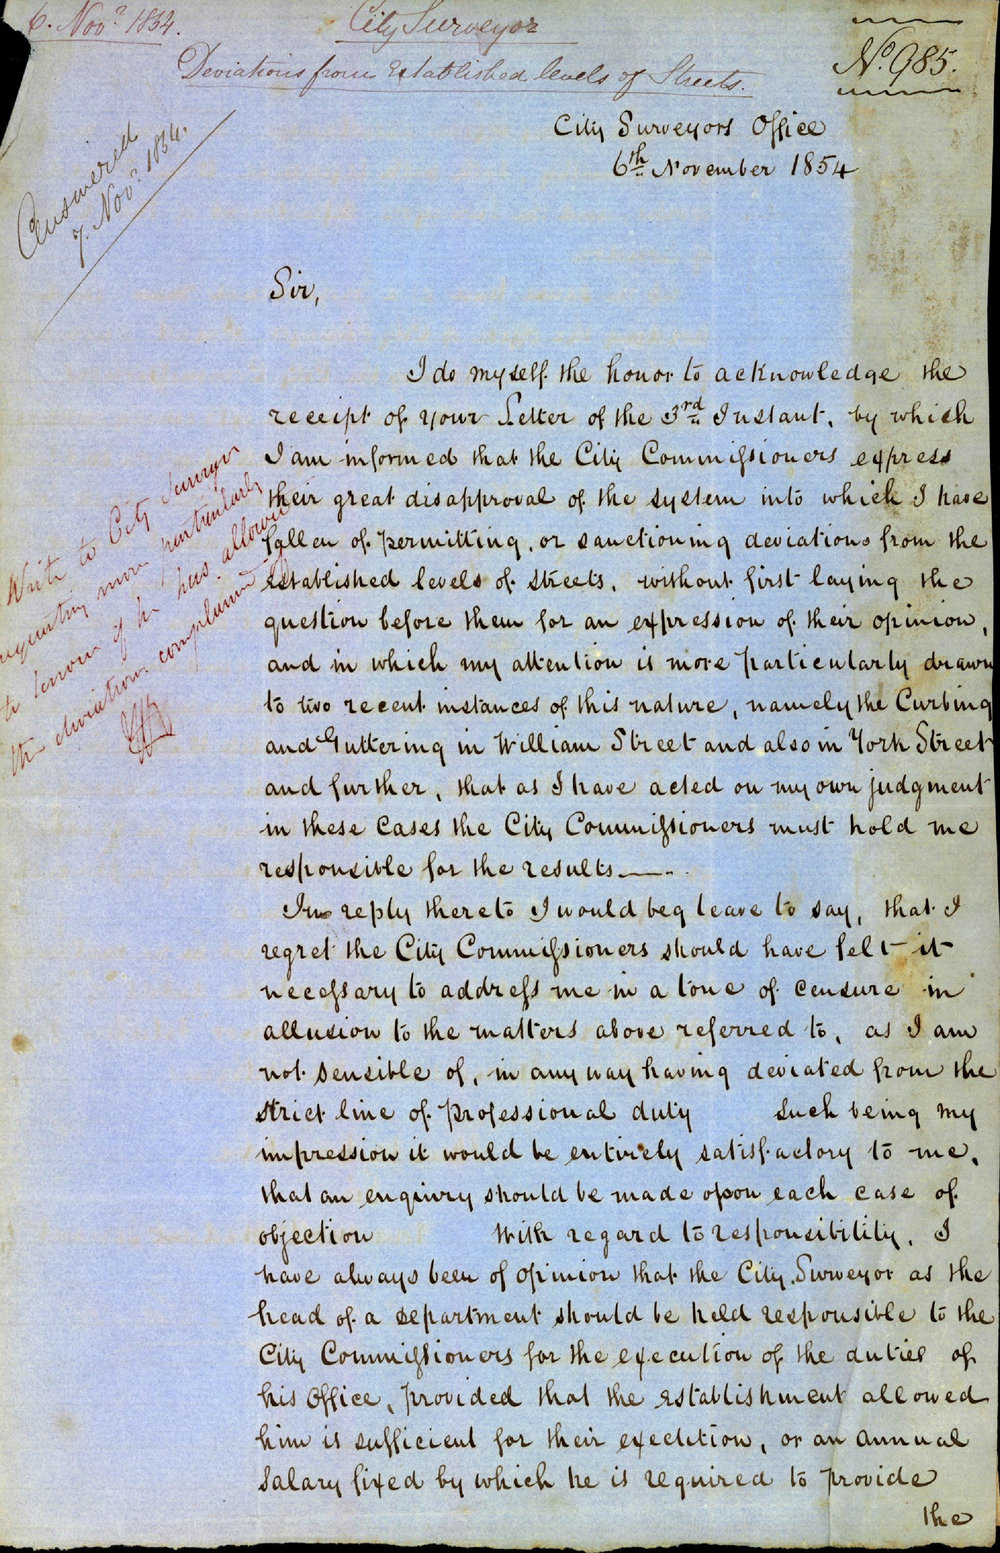 6. Novr. 1854.
City Surveyor
No. 985.
Deviations from Established levels of Streets.
City Surveyors Office
6th November 1854
Answered
7. Novr. 1854.
Sir,
I do myself the honor to acknowledge the
receipt of your Letter of the 3rd Instant, by which
I am informed that the City Commissioners express
their great disapproval of the system into which I have
fallen of permitting, or sanctioning deviations from the
established levels of streets, without first laying the
question before them for an expression of their opinion,
and in which my attention is more particularly drawn
to two recent instances of this nature, namely the Curbing
and Guttering in William Street and also in York Street
and further, that as I have acted on my own judgment
in these cases the City Commissioners must hold me
responsible for the results
Write to City Surveyor
requesting more particularly
to know if he has allowed
the deviations complained of
In reply thereto I would beg leave to say, that I
regret the City Commissioners should have felt it
necessary to address me in a tone of censure in
allusion to the matters above referred to, as I am
not sensible of, in any way having deviated from the
strict line of professional duty such being my
impression it would be entirely satisfactory to me,
that an enquiry should be made upon each case of
objection With regard to responsibility, I
have always been of opinion that the City Surveyor as the
head of a department should be held responsible to the
City Commissioners for the execution of the duties of
his Office, provided that the establishment allowed
him is sufficient for their execution, or an annual
Salary fixed by which he is required to provide
the